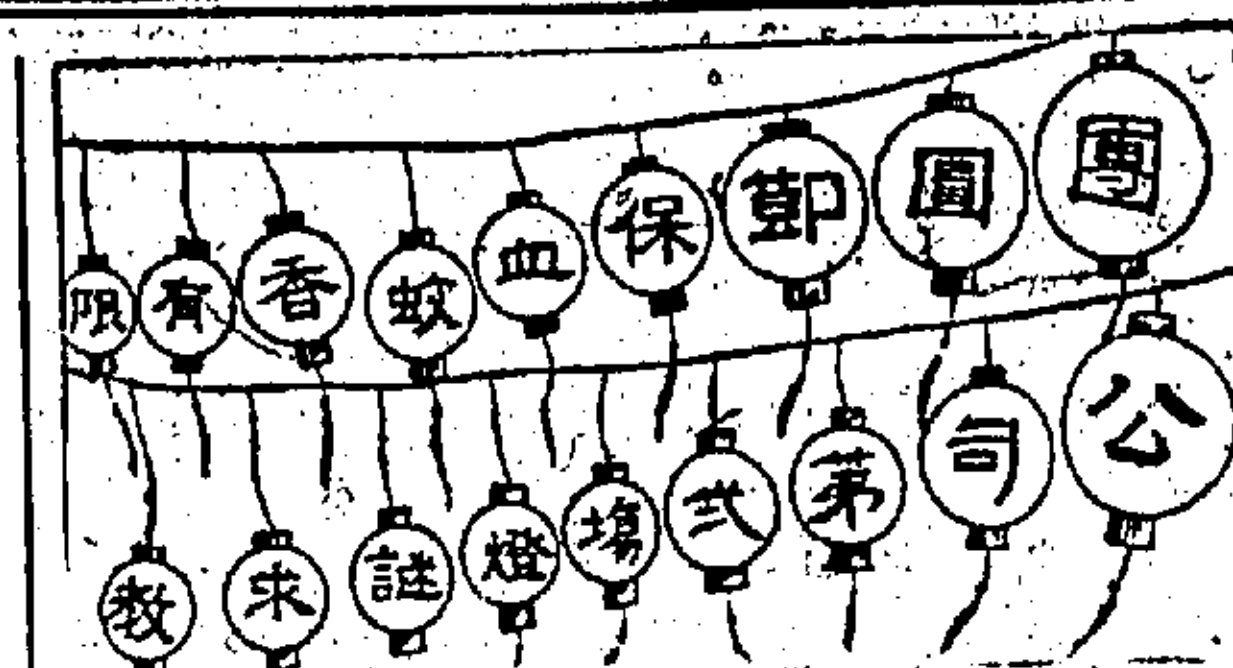 團圓莭保血蚊香有限
公司苐弍塲燈謎求教